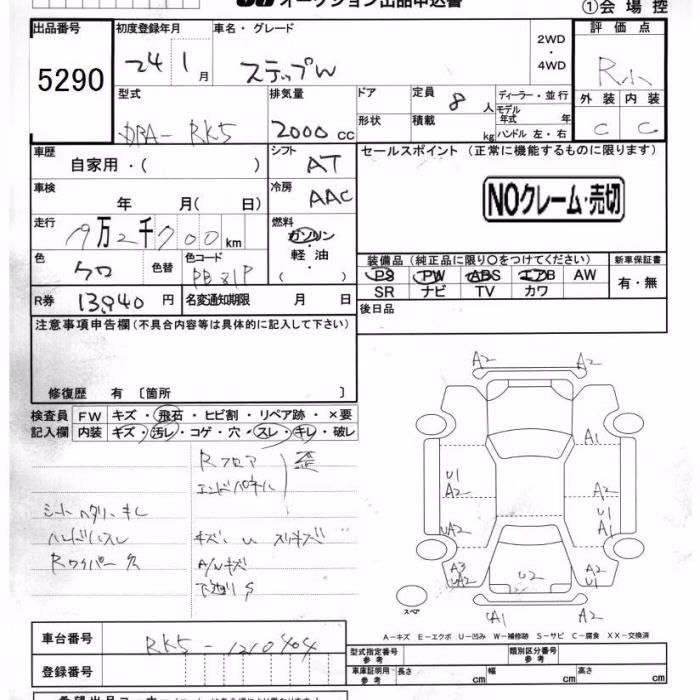 オークション出品申込書
①会場控
出品番号
5290
初度登録年月
24 1月
車名・グレード
ステップW
2WD
・
4WD
評価点
R小
型式
DBA- RK5
排気量
2000cc
ドア
形状
定員 8人
積載 kg
ディーラー・並行
モデル年式 年
ハンドル 左・右
外装 内装
C C
車歴
自家用・( )
シフト
AT
セールスポイント (正常に機能するものに限ります)
車検
年 月( 日)
冷房
AAC
NOクレーム・売切
走行
9万2千700km
燃料
ガソリン
・
軽油
・( )
色
クロ
色替
色コード
PB81P
装備品 (純正品に限り○をつけてください)
PS PW ABS エアB AW
SR ナビ TV カワ
新車保証書
有・無
R券 13,940円
名変通知期限 月 日
後日品
注意事項申告欄 (不具合内容等は具体的に記入して下さい)
修復歴 有 〔箇所 〕
検査員
記入欄
FW キズ・飛石・ヒビ割・リペア跡・×要
内装 キズ・汚レ・コゲ・穴・スレ・キレ・破レ
Rフロア
エンドパネル
歪
シートヘタリ、キレ
ハンドルスレ
Rワイパー欠
キズ、U スリキズ
A/Wキズ
下廻りS
A2 A2
A1
U1
A2
A2
U1
UA2
A1
A3
UA2
U2
A2
U1
UA1 A2
スペア
A-キズ E-エクボ U-凹み W-補修跡 S-サビ C-腐食 XX-交換済
車台番号
RK5-1210404
登録番号
型式指定番号
参考
類別区分番号
参考
車庫証明用
参考
長さ cm 幅 cm 高さ cm